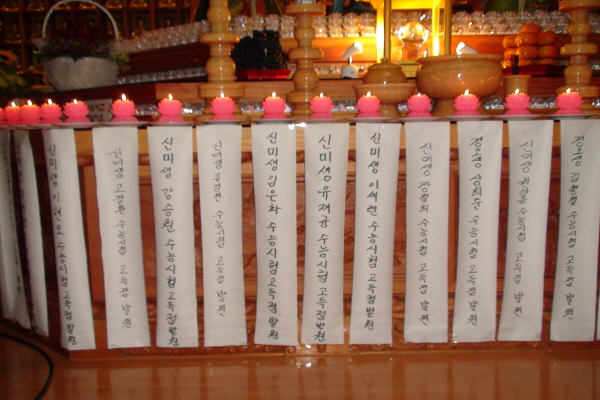 신미생 이 수능시험 고득점 발원
신미생 고 수능시험 고득점 발원
신미생 강승원 수능시험 고득점 발원
신미생 수능시험 고득점 발원
신미생 김은화 수능시험 고득점 발원
신미생 유재경 수능시험 고득점 발원
신미생 이세련 수능시험 고득점 발원
신미생 수능시험 고득점 발원
경오생 수능시험 고득점 발원
신미생 수능시험 고득점 발원
경오생 수능시험 고득점 발원